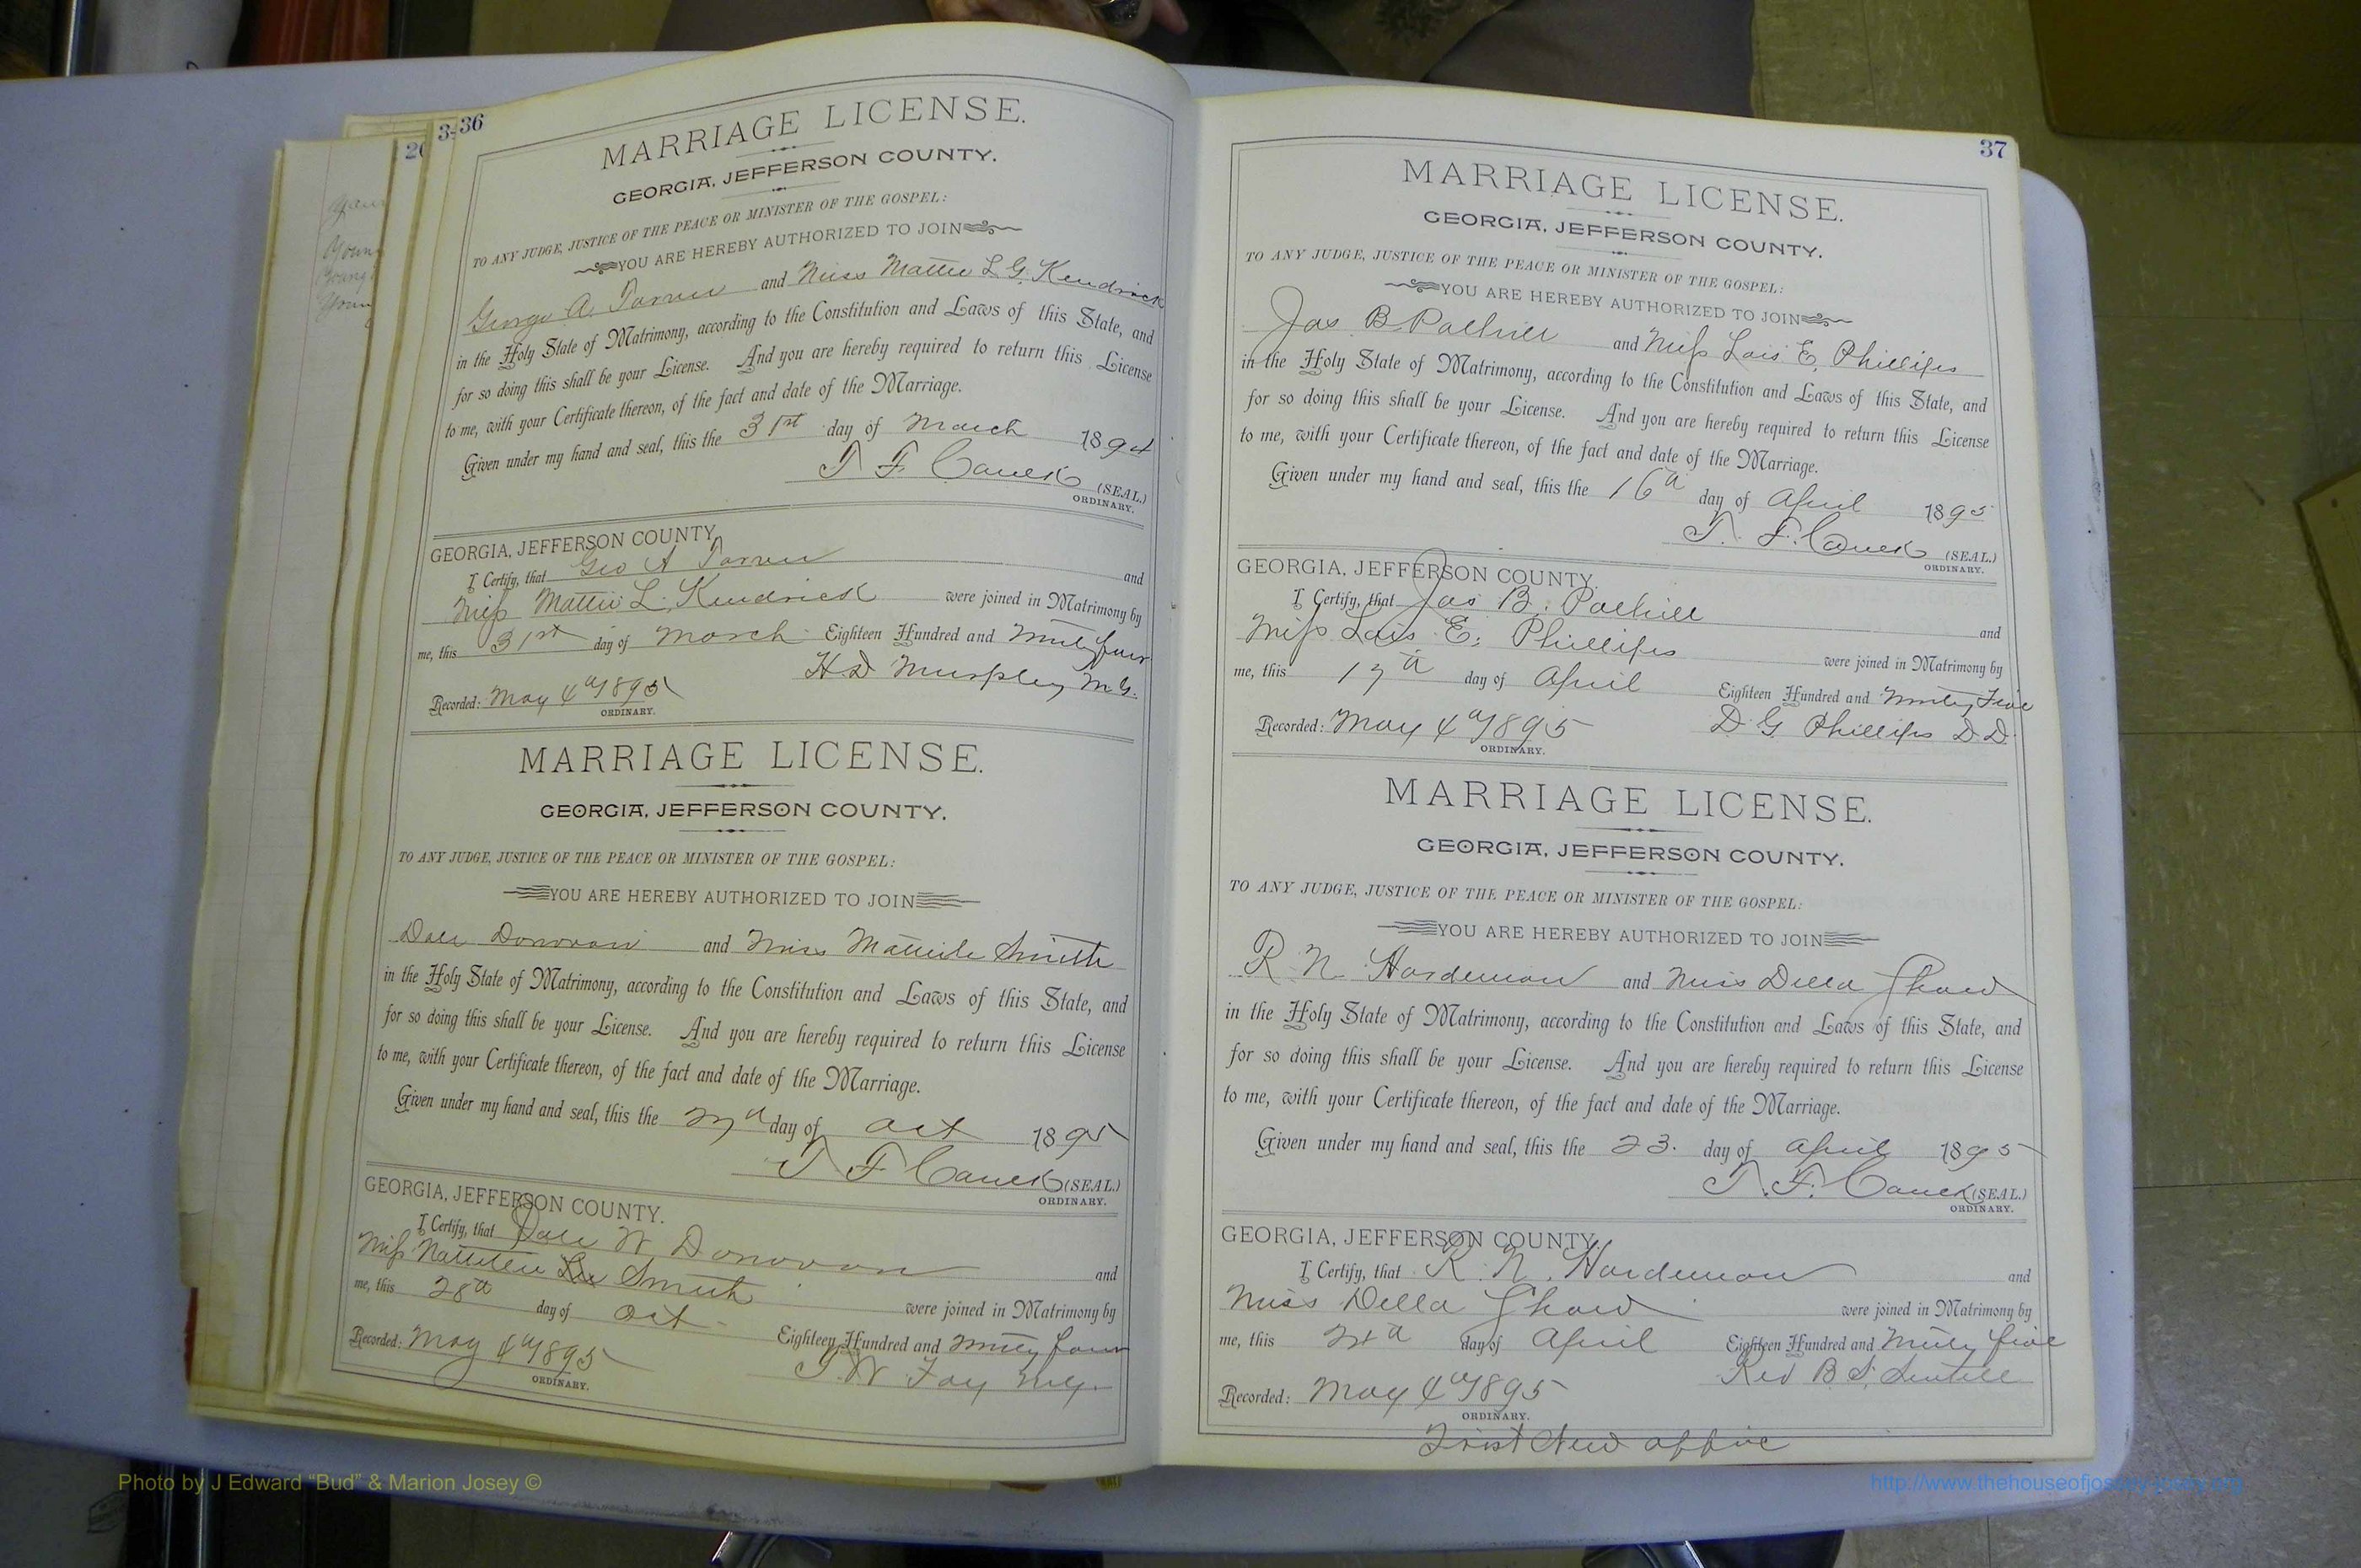 36
MARRIAGE LICENSE.
GEORGIA, JEFFERSON COUNTY.
TO ANY JUDGE, JUSTICE OF THE PEACE OR MINISTER OF THE GOSPEL:
YOU ARE HEREBY AUTHORIZED TO JOIN
George A. and Miss Mattie L G. Kendrick
in the Holy State of Matrimony, according to the Constitution and Laws of this State, and
for so doing this shall be your License. And you are hereby required to return this License
to me, with your Certificate thereon, of the fact and date of the Marriage.
Given under my hand and seal, this the 31st day of March 1894
T F (SEAL.)
ORDINARY.
GEORGIA, JEFFERSON COUNTY.
I Certify, that Geo A and
Miss Mattie L. Kendrick were joined in Matrimony by
me, this 31st day of March Eighteen Hundred and Ninety four
H D Murphey M G.
Recorded: May 4th 1895
ORDINARY.
MARRIAGE LICENSE.
GEORGIA, JEFFERSON COUNTY.
TO ANY JUDGE, JUSTICE OF THE PEACE OR MINISTER OF THE GOSPEL:
YOU ARE HEREBY AUTHORIZED TO JOIN
Dale Donovan and Miss Smith
in the Holy State of Matrimony, according to the Constitution and Laws of this State, and
for so doing this shall be your License. And you are hereby required to return this License
to me, with your Certificate thereon, of the fact and date of the Marriage.
Given under my hand and seal, this the 27th day of Oct 1895
T F (SEAL.)
ORDINARY.
GEORGIA, JEFFERSON COUNTY.
I Certify, that Dale W Donovan and
Miss Smith were joined in Matrimony by
me, this 28th day of Oct Eighteen Hundred and Ninety four
Recorded: May 4th 1895 M G.
ORDINARY.
37
MARRIAGE LICENSE.
GEORGIA, JEFFERSON COUNTY.
TO ANY JUDGE, JUSTICE OF THE PEACE OR MINISTER OF THE GOSPEL:
YOU ARE HEREBY AUTHORIZED TO JOIN
Jas B Polhill and Miss Lois E. Phillips
in the Holy State of Matrimony, according to the Constitution and Laws of this State, and
for so doing this shall be your License. And you are hereby required to return this License
to me, with your Certificate thereon, of the fact and date of the Marriage.
Given under my hand and seal, this the 16th day of April 1895
T. F. (SEAL.)
ORDINARY.
GEORGIA, JEFFERSON COUNTY.
I Certify, that Jas B. Polhill and
Miss Lois E. Phillips were joined in Matrimony by
me, this 17th day of April Eighteen Hundred and Ninety Five
Recorded: May 4th 1895 D G Phillips D D.
ORDINARY.
MARRIAGE LICENSE.
GEORGIA, JEFFERSON COUNTY.
TO ANY JUDGE, JUSTICE OF THE PEACE OR MINISTER OF THE GOSPEL:
YOU ARE HEREBY AUTHORIZED TO JOIN
R N Hardeman and Miss Della Shaw
in the Holy State of Matrimony, according to the Constitution and Laws of this State, and
for so doing this shall be your License. And you are hereby required to return this License
to me, with your Certificate thereon, of the fact and date of the Marriage.
Given under my hand and seal, this the 23. day of April 1895
T. F. (SEAL.)
ORDINARY.
GEORGIA, JEFFERSON COUNTY.
I Certify, that R. N. Hardeman and
Miss Della Shaw were joined in Matrimony by
me, this 24th day of April Eighteen Hundred and Ninety five
Rev B S. Sentell
Recorded: May 4th 1895
ORDINARY.
First New office
Photo by J Edward “Bud” & Marion Josey ©